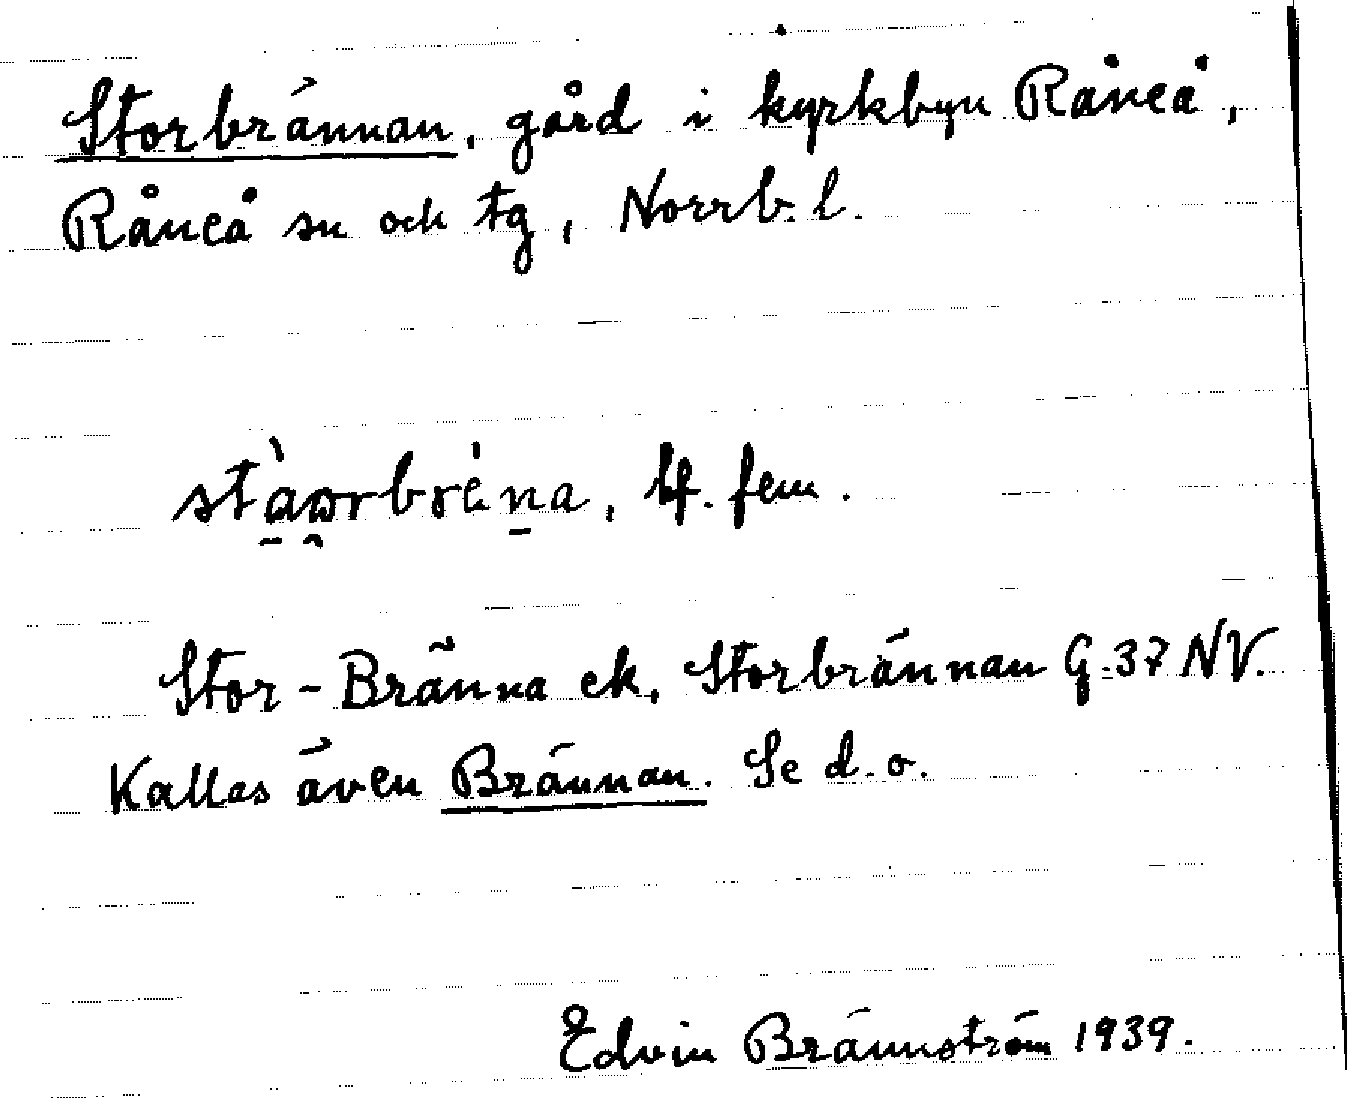 Storbrännan, gård i kyrkbyn Råneå,
Råneå sn och tg, Norrb. l.
bf. fem.
Stor-Bränna ek, Storbrännan G.37 NV.
Kallas även Brännan. Se d. o.
Edvin Brännström 1939.